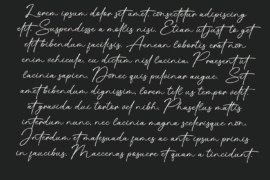 Lorem ipsum dolor sit amet, consectetur adipiscing
elit. Suspendisse a mattis nisi. Etiam ut justo eget
elit bibendum facilisis. Aenean lobortis erat non
enim vehicula, eu dictum nisl lacinia. Praesent ut
lacinia sapien. Donec quis pulvinar augue. Sit
amet bibendum dignissim, lorem tellus tempor velit,
et gravida dui tortor vel nibh. Phasellus mattis
interdum nunc, nec lacinia magna scelerisque non.
Interdum et malesuada fames ac ante ipsum primis
in faucibus. Maecenas posuere et quam a tincidunt.